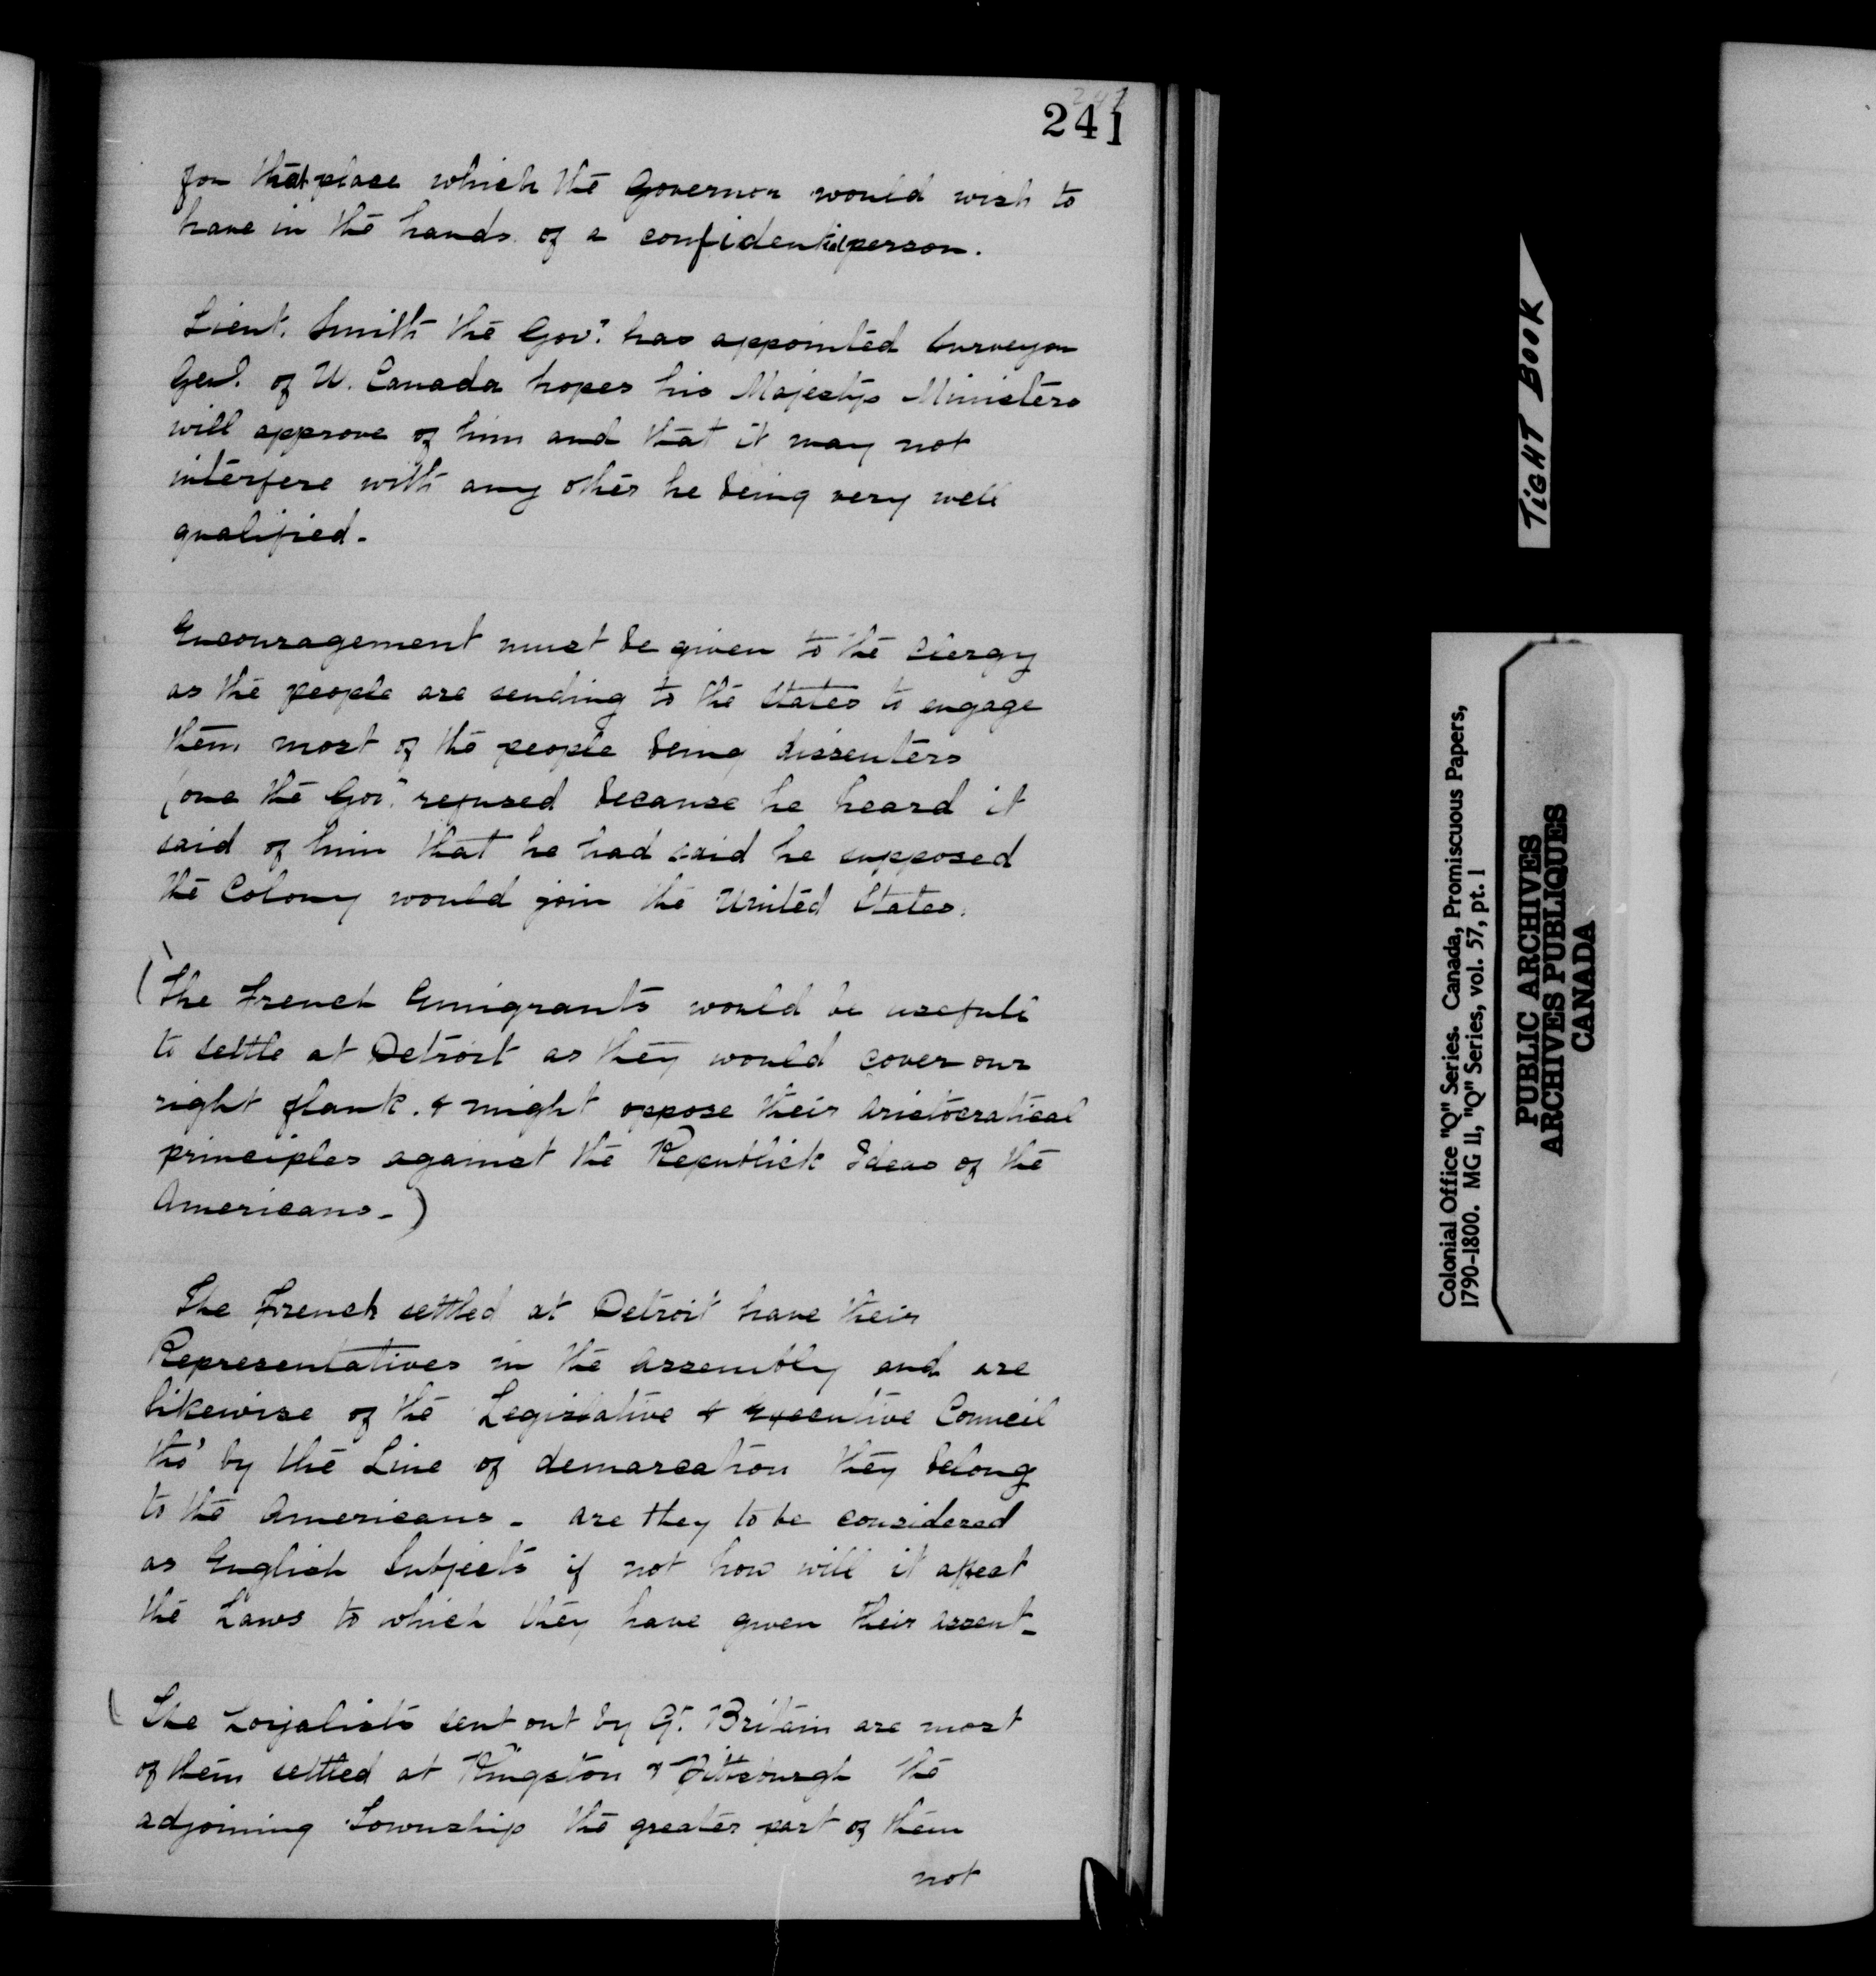 241
for that place which the Governor would wish to
have in the hands of a confidential person.
Lieut. Smith the Govr. has appointed Surveyor
Genl. of U. Canada hopes his Majestys Ministers
will approve of him and that it may not
interfere with any other he being very well
qualified.
Encouragement must be given to the Clergy
as the people are sending to the States to engage
them most of the people being dissenters
(one the Govr. refused because he heard it
said of him that he had said he supposed
the Colony would join the United States.
(The French Emigrants would be usefull
to settle at Detroit as they would cover our
right flank. & might oppose their Aristocratical
principles against the Republick Ideas of the
Americans-)
The French settled at Detroit have their
Representatives in the Assembly and are
likewise of the Legislative & Executive Council
tho' by the Line of demarcation they belong
to the Americans - are they to be considered
as English Subjects if not how will it affect
the Laws to which they have given their assent-
(The Loyalists sent out by Gt. Britain are most
of them settled at Kingston & Pittsburgh the
adjoining Township the greater part of them
not
TIGHT BOOK
Colonial Office "Q" Series. Canada, Promiscuous Papers,
1790-1800. MG 11, "Q" Series, vol. 57, pt. 1
PUBLIC ARCHIVES
ARCHIVES PUBLIQUES
CANADA